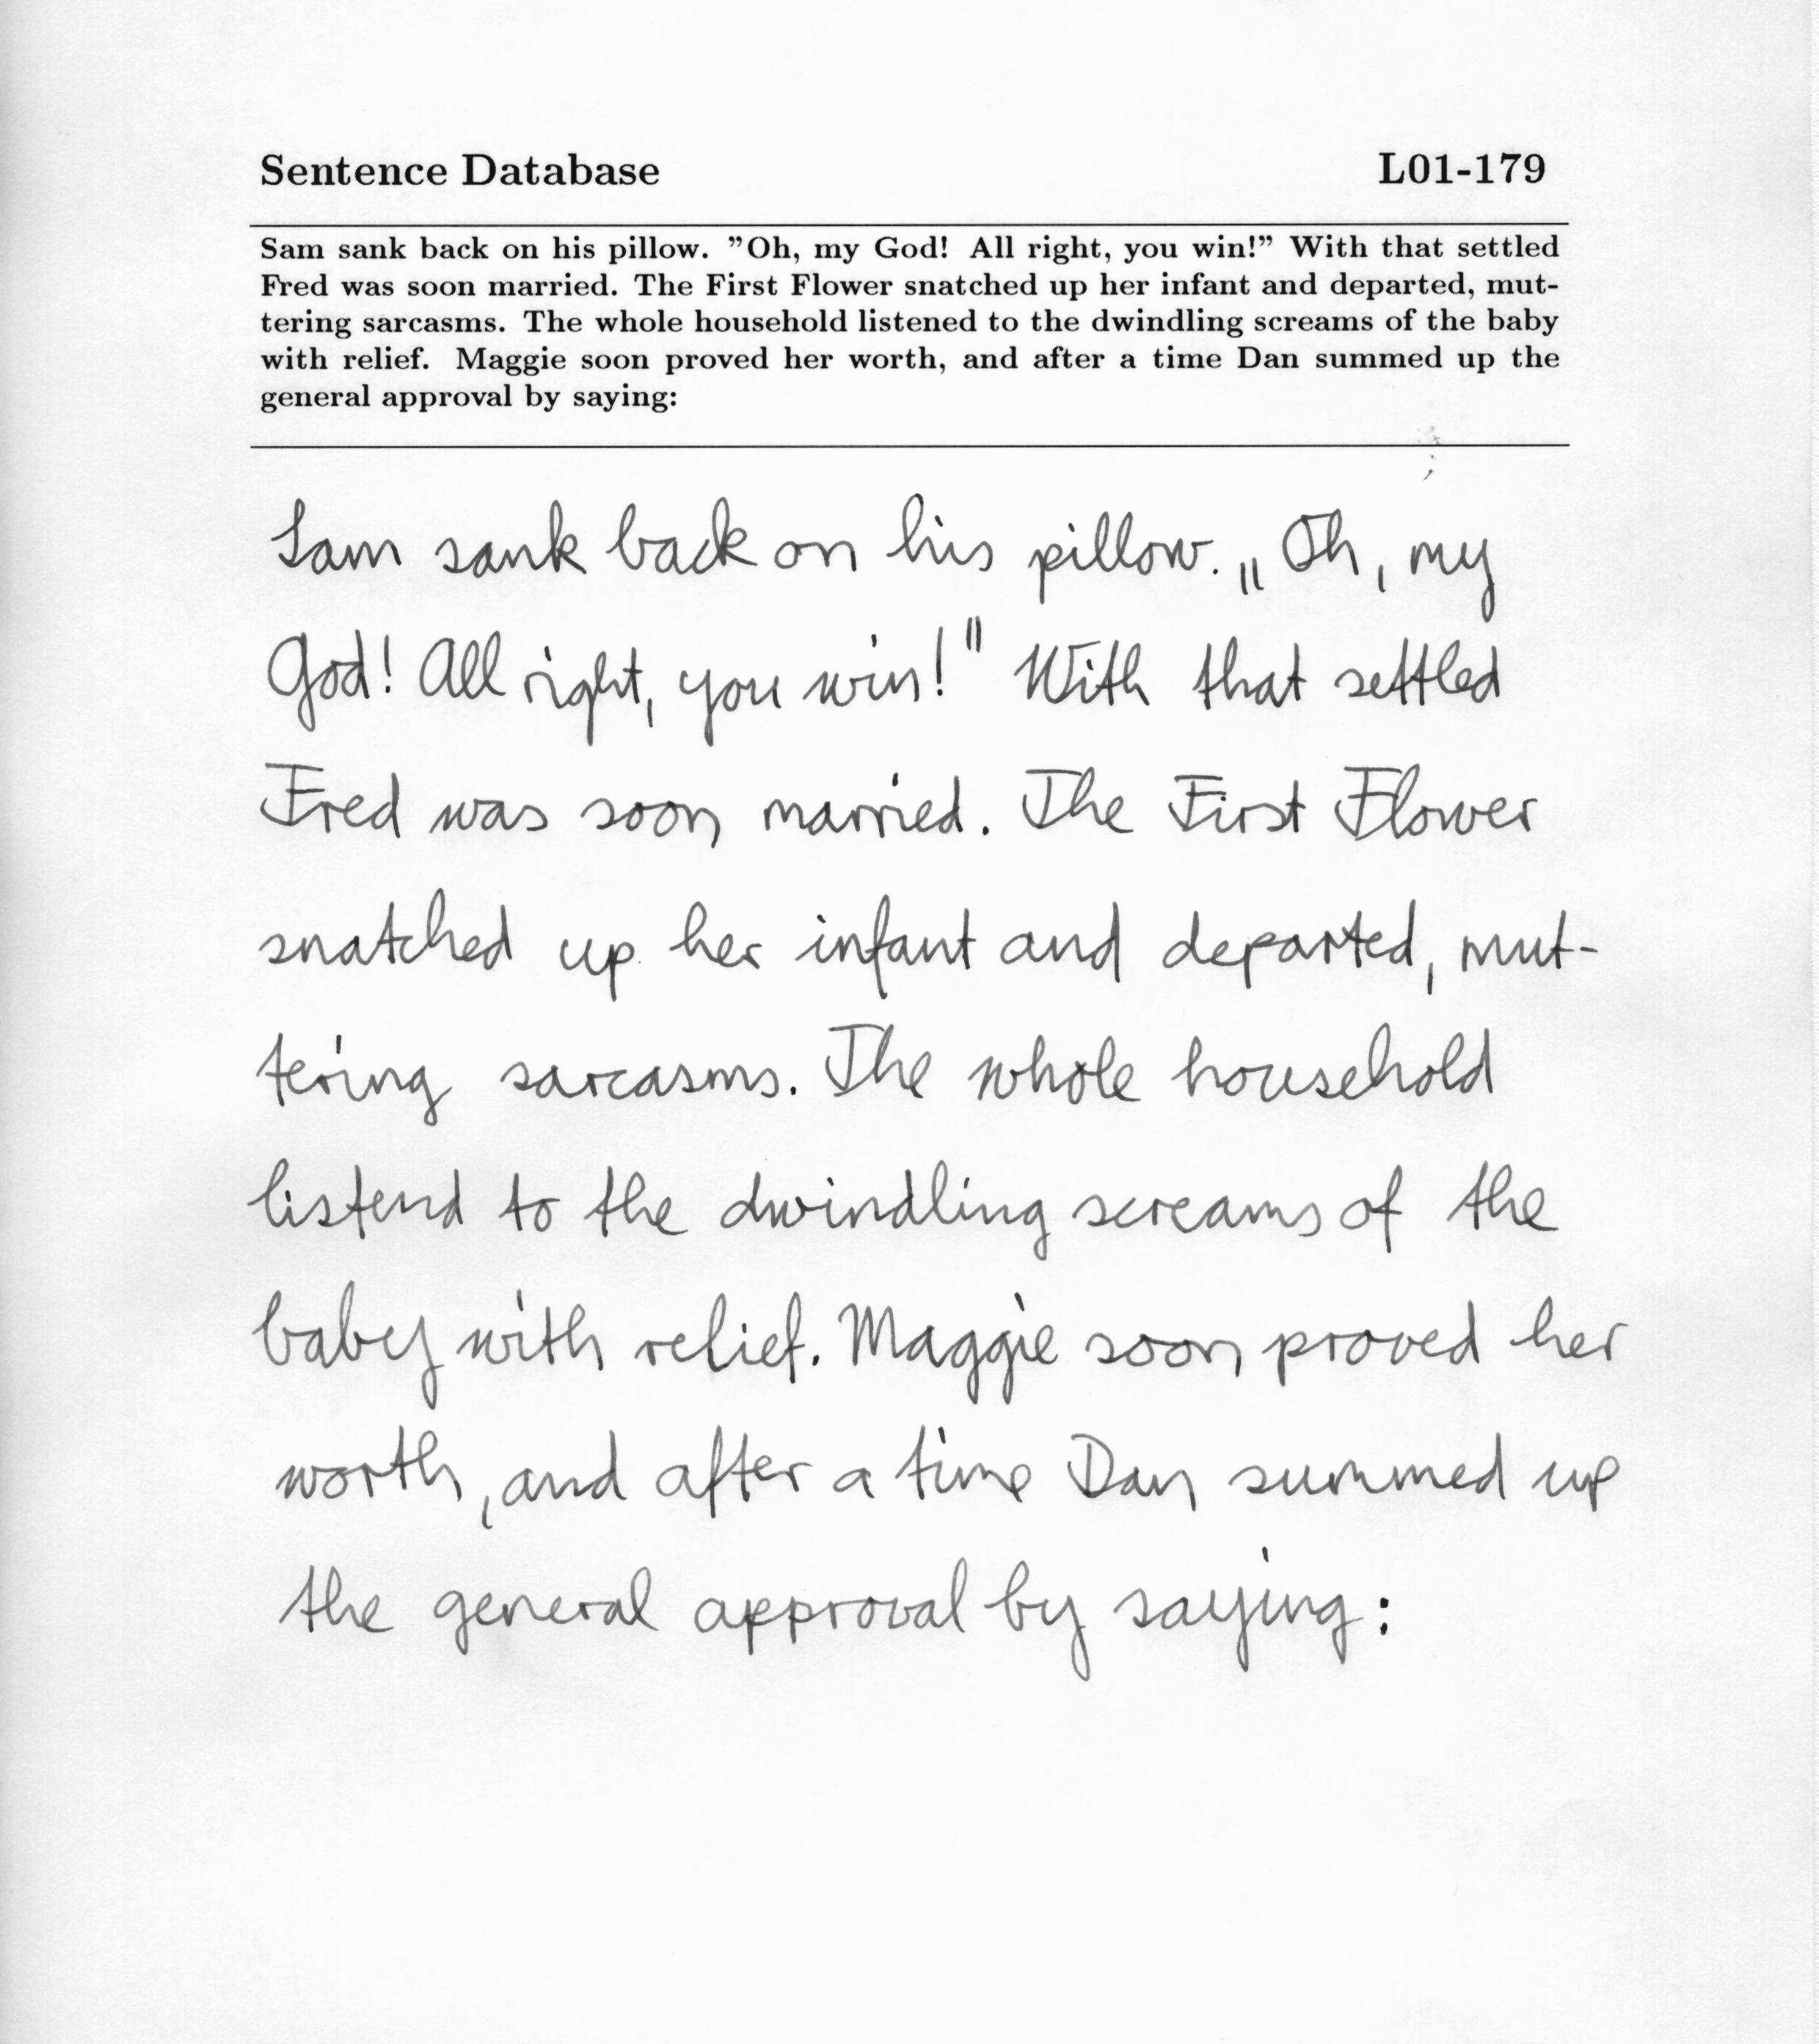 Sentence Database L01-179
Sam sank back on his pillow. ”Oh, my God! All right, you win!” With that settled
Fred was soon married. The First Flower snatched up her infant and departed, mut-
tering sarcasms. The whole household listened to the dwindling screams of the baby
with relief. Maggie soon proved her worth, and after a time Dan summed up the
general approval by saying:
Sam sank back on his pillow. „Oh, my
God! All right, you win!" With that settled
Fred was soon married. The First Flower
snatched up her infant and departed, mut-
tering sarcasms. The whole household
listend to the dwindling screams of the
baby with relief. Maggie soon proved her
worth, and after a time Dan summed up
the general approval by saying: